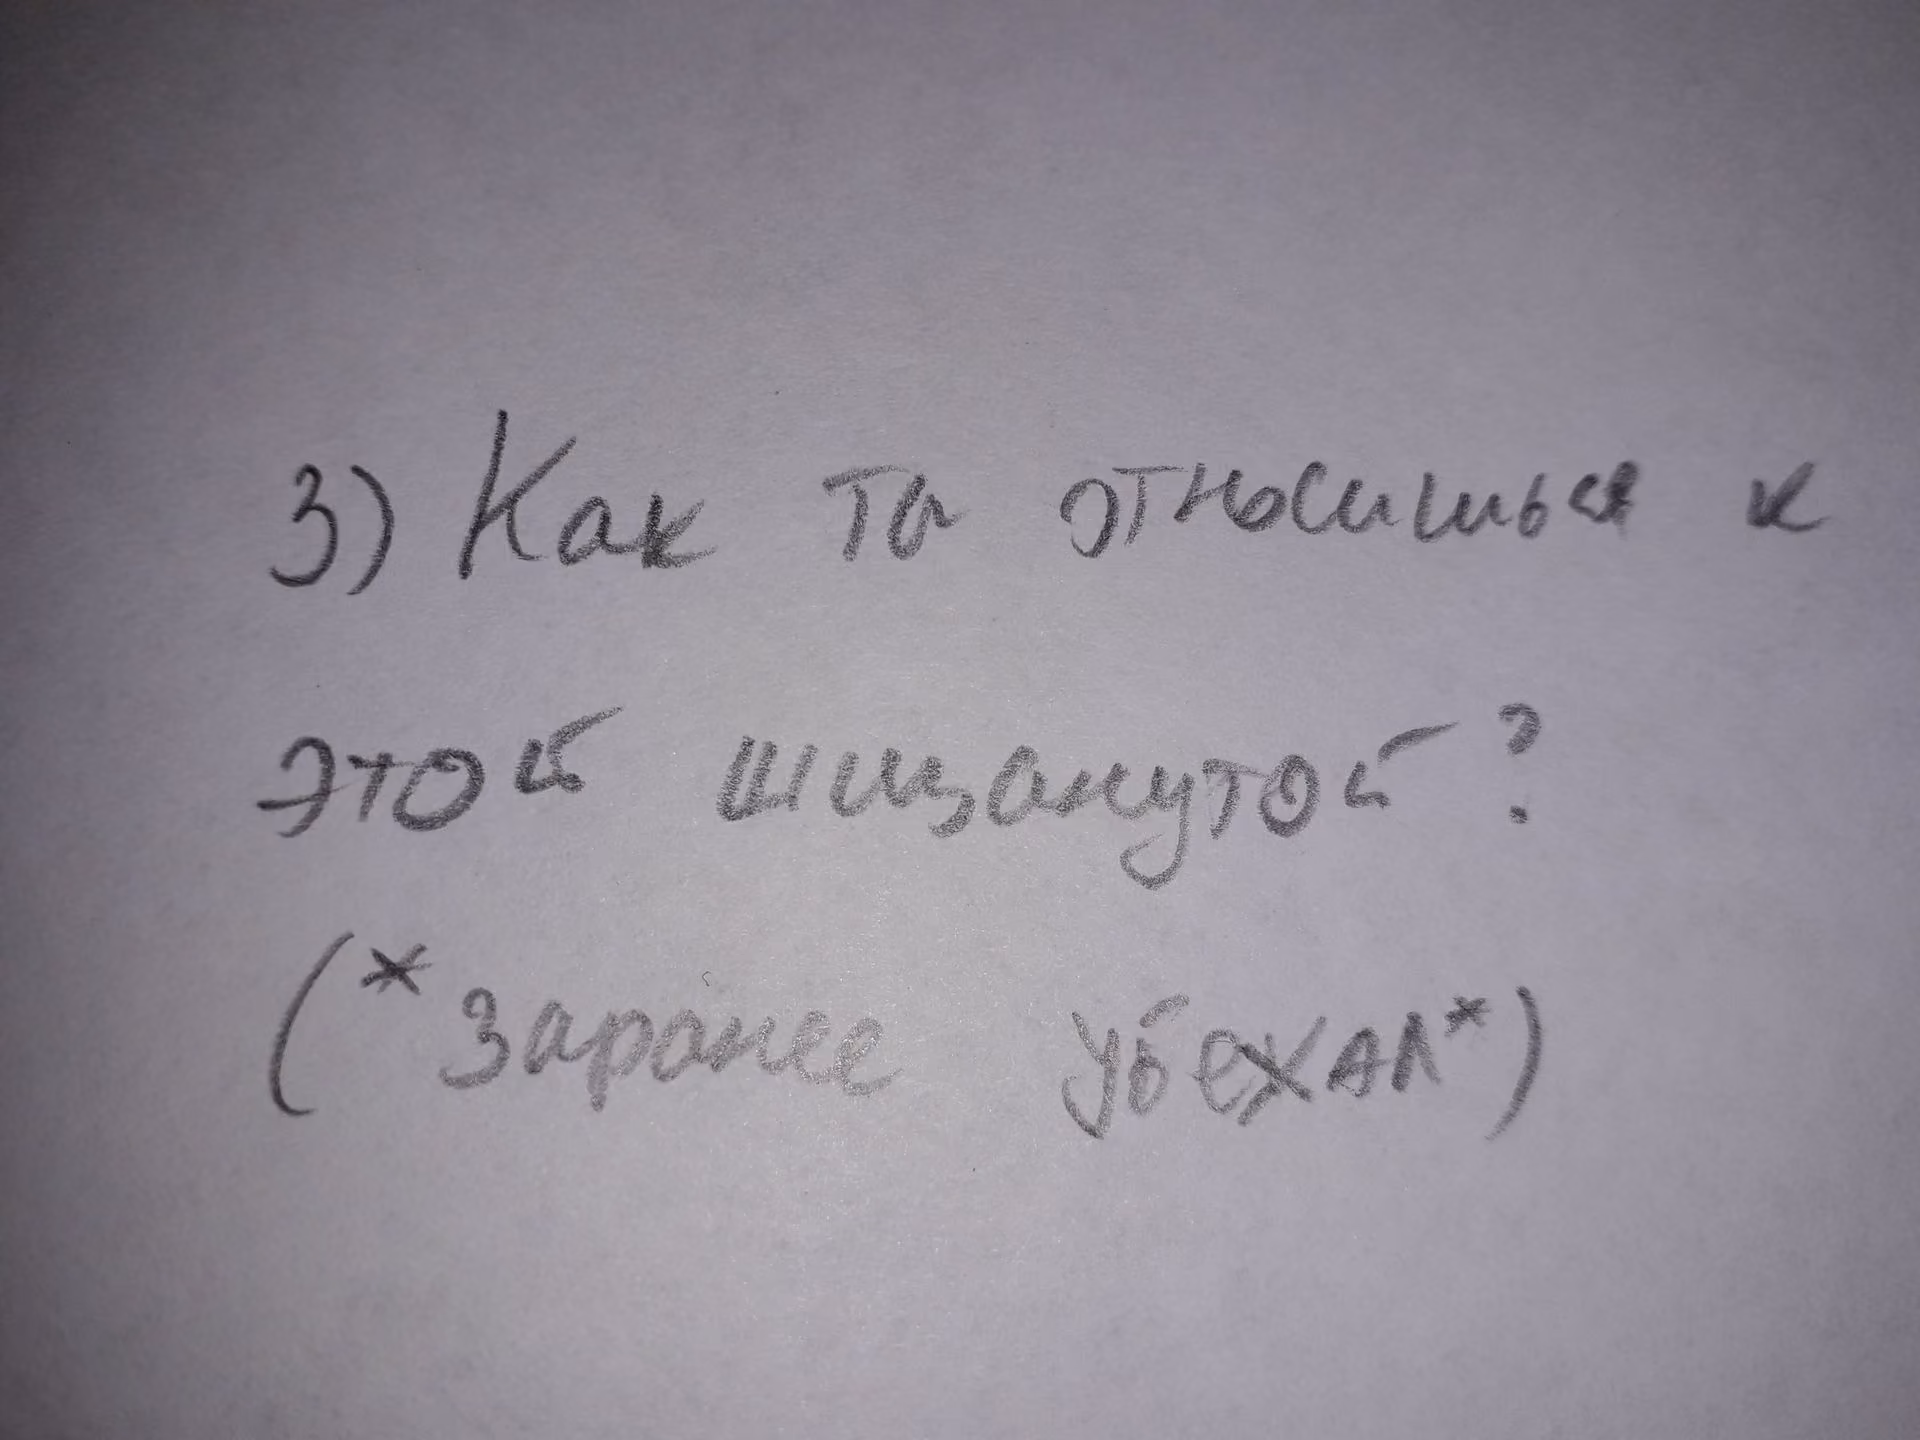 3) Как ты относишься к
этой шизанутой?
(*Заранее убежал*)